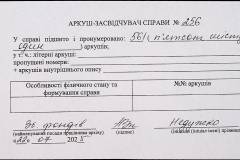 АРКУШ-ЗАСВІДЧУВАЧ СПРАВИ № 256
У справі підшито і пронумеровано: 561 (п'ятсот
один) аркушів,
у т.ч.: літерні аркуші:
пропущені номери:
+ аркушів внутрішнього опису
Особливості фізичного стану та формування справи
№№ аркушів
Зб. фондів
(найменування посади працівника архіву)
07 202